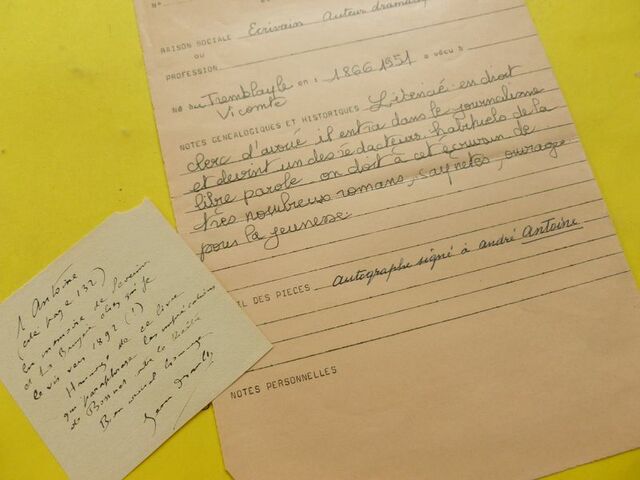 N°
RAISON SOCIALE Ecrivain Auteur dramatiq
OU
PROFESSION
Né au Tremblay le en : 1866 1951 a vécu à
Vicomte
NOTES GENEALOGIQUES ET HISTORIQUES Licencié en droit
clerc d'avoué il entra dans le journalisme
et devint un des rédacteurs habituels de la
libre parole on doit à cet écrivain de
très nombreux romans, saynètes, ouvrages
pour la jeunesse.
IL DES PIECES autographe signé à andré Antoine
NOTES PERSONNELLES
à Antoine
(cité page 132)
en mémoire de
et La chez qui je
le vis vers 1892 (?)
Hommage de ce livre
qui paraphrase les
de
Bien amical hommage
Jean Drault